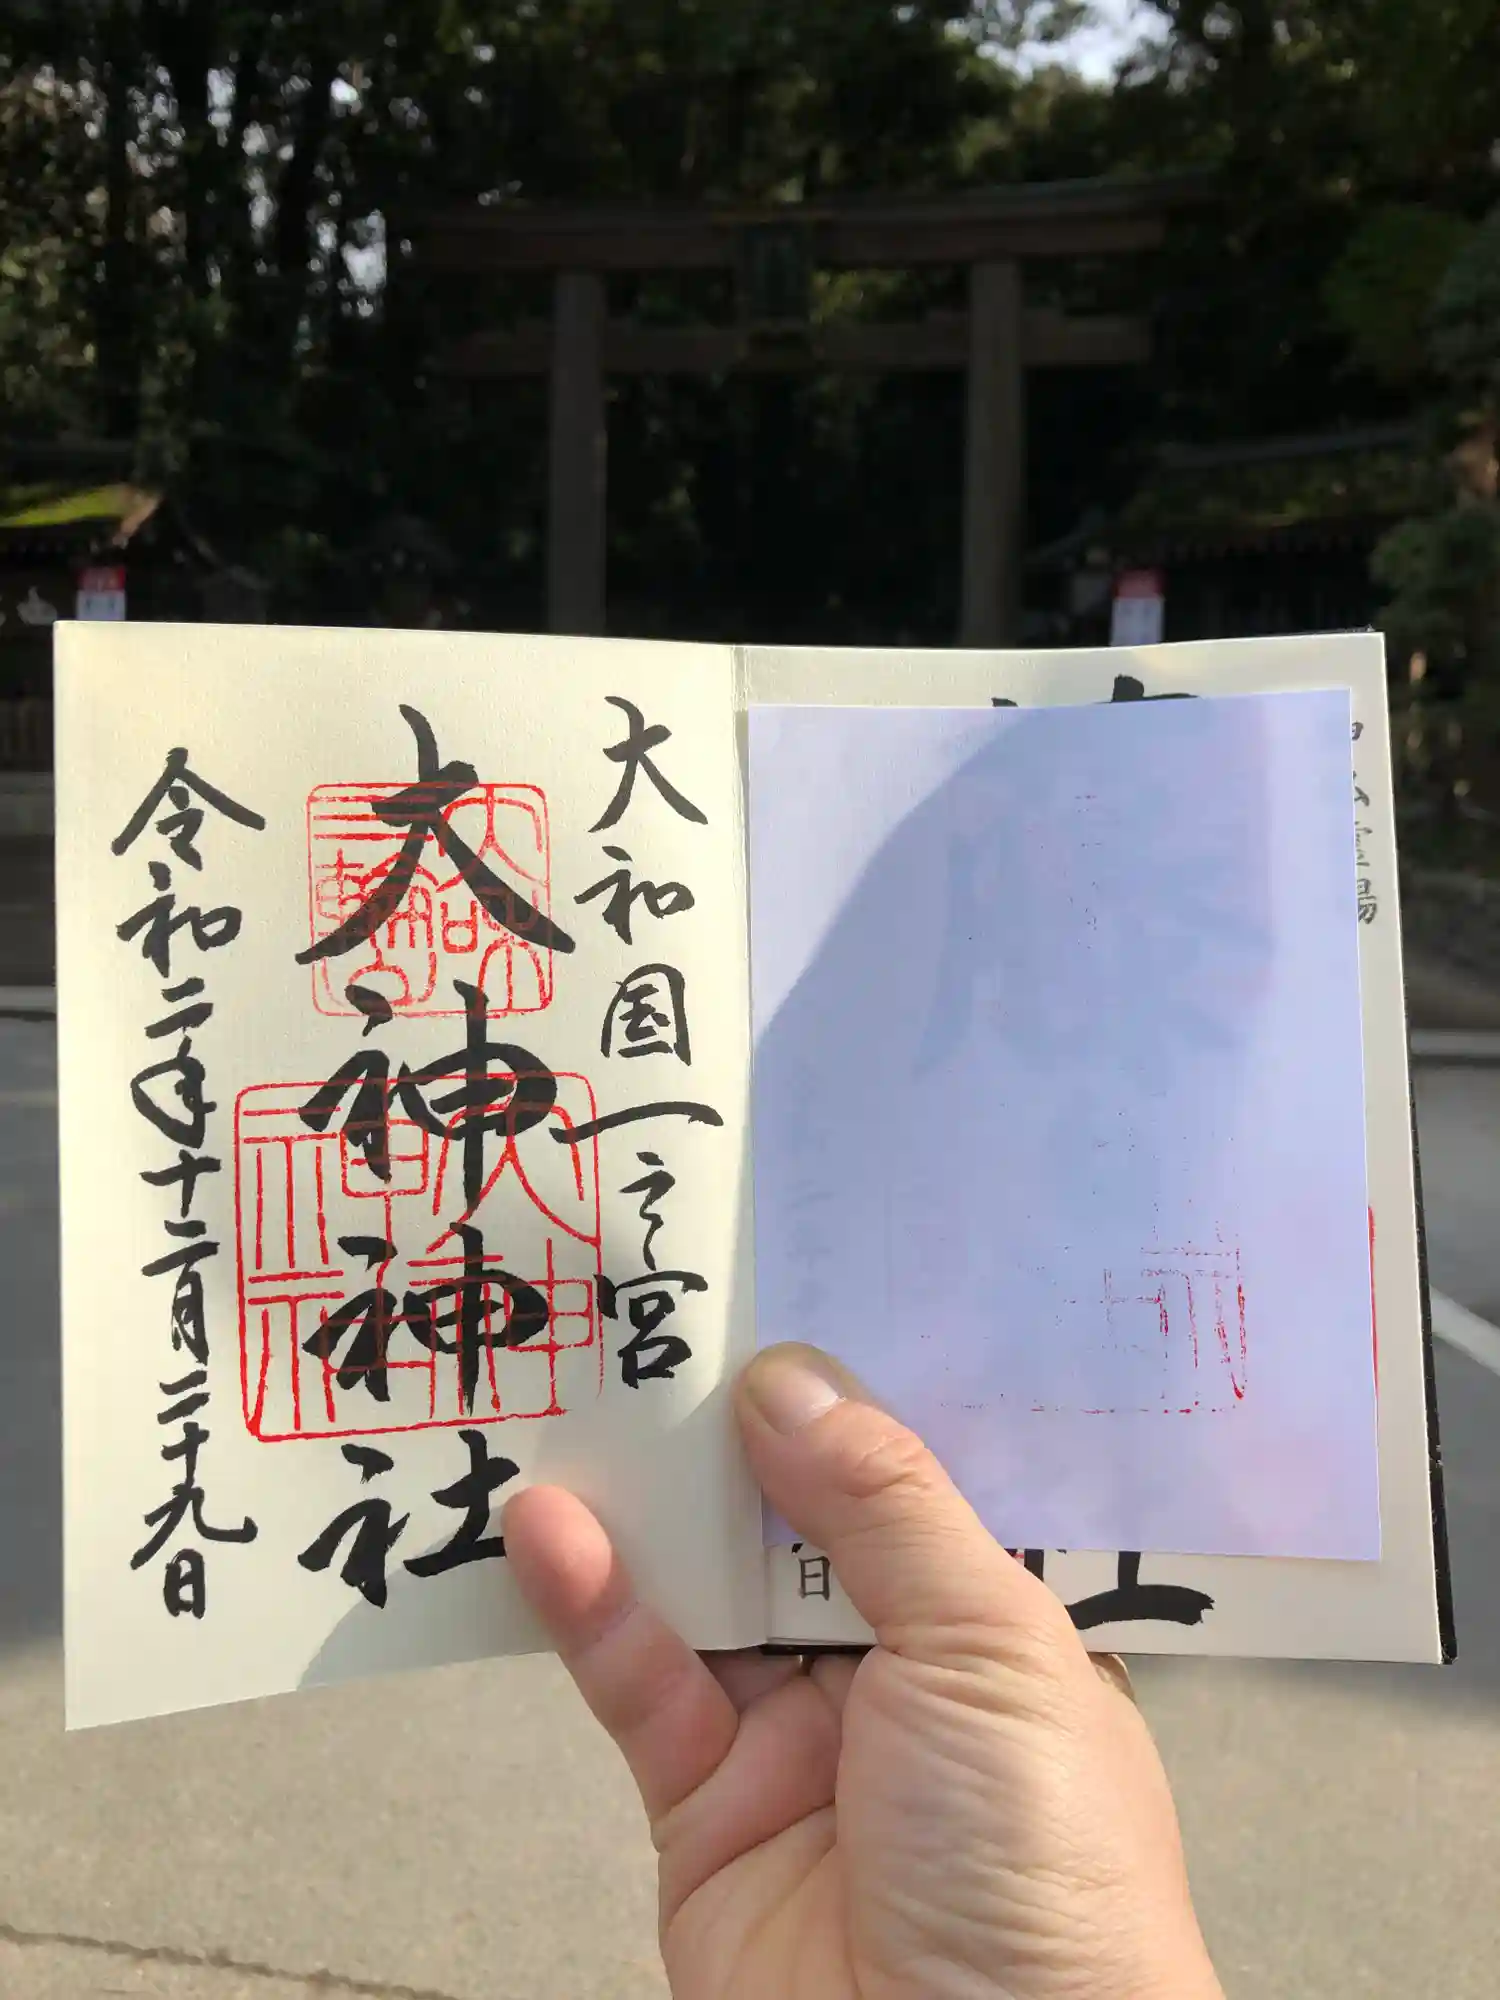 大和国一之宮
大神神社
令和二年十二月二十九日
大神神社
霊場
日